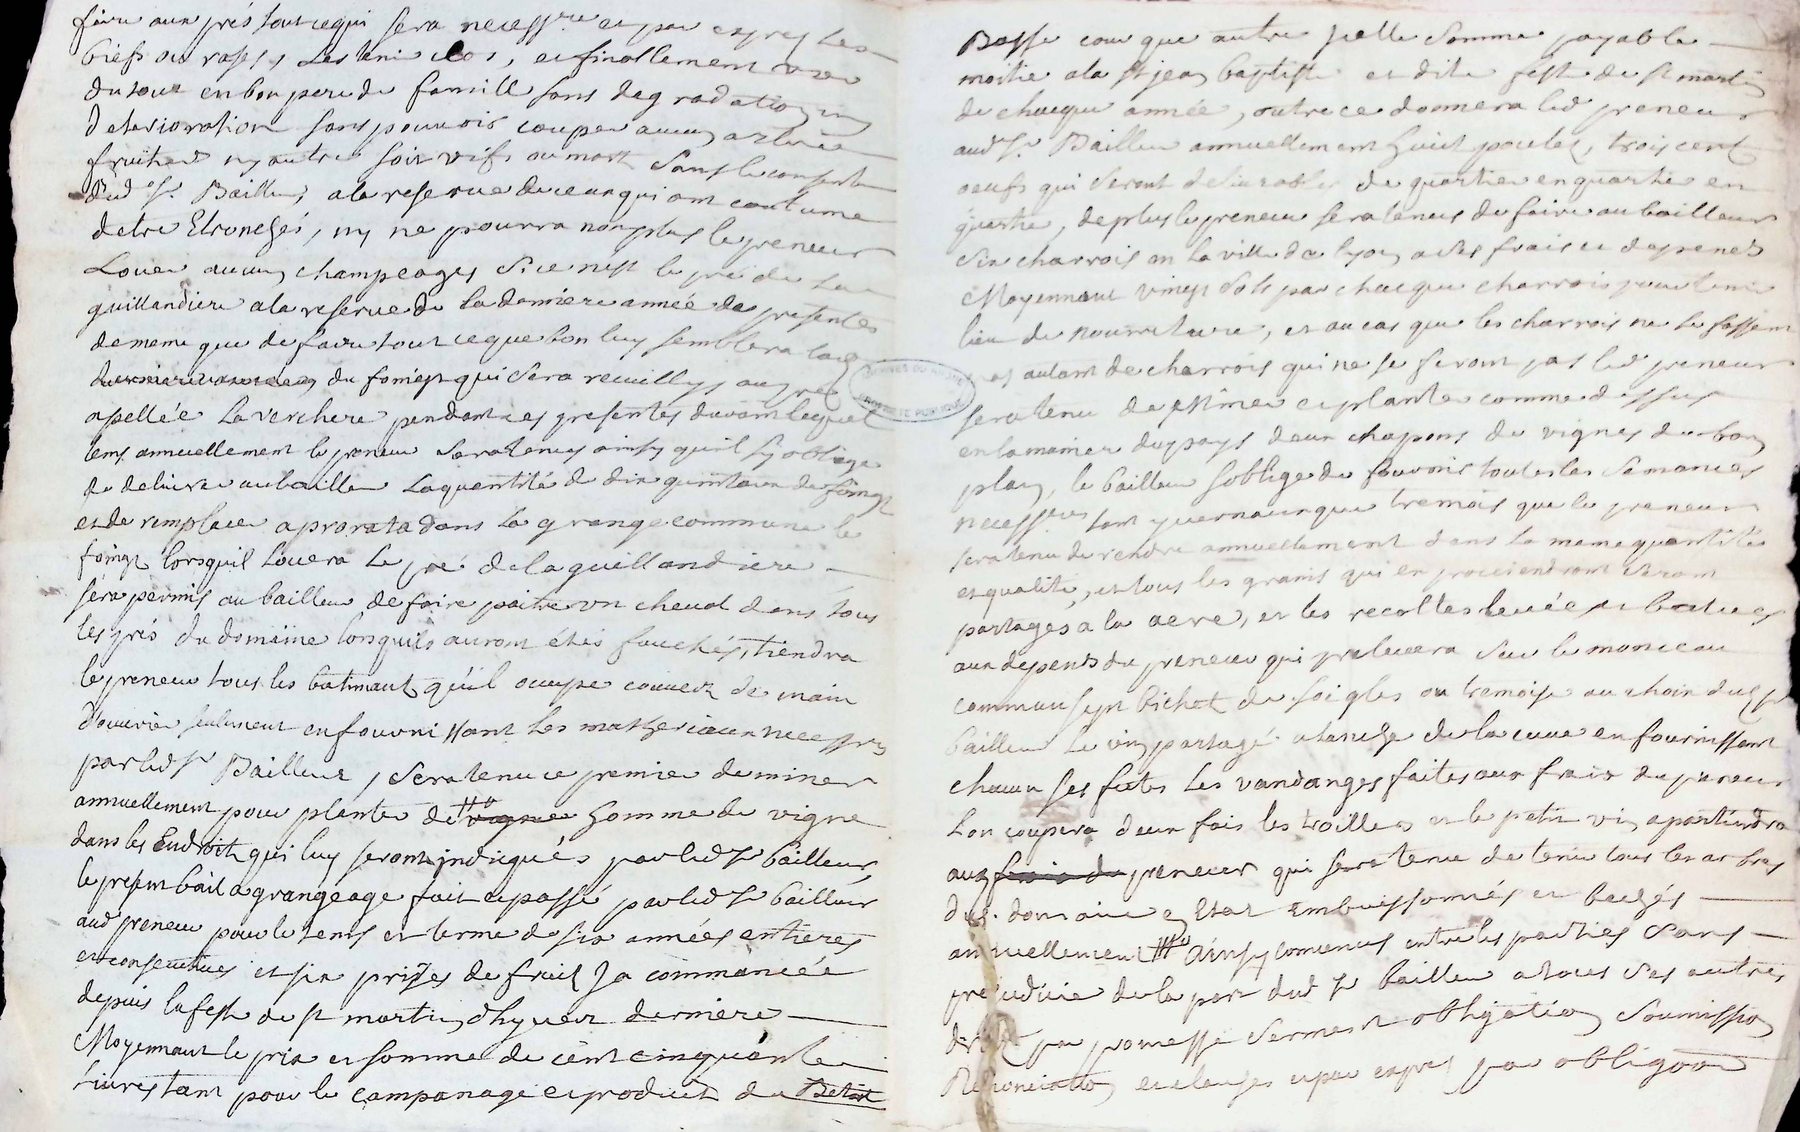 faire aux prés tout ce qui sera necessre et par exprez les
biefs ou rases, les tenir clos, et finallement user
du tout en bon pere de famille sans degradation ny
deterioration sans pouvoir couper aucun arbre
fruitier ny autre soit vifs ou mort sans le consente
Dud. Sr. Bailleur, a la reserve de ceux qui ont coutume
detre Etronchés, ny ne pourra non plus le preneur
Louer aucun champeages si ce nest le pré de la
guillandiere a la reserve de la derniere année des presentes
de meme que de faire tout ce que bon luy semblera
du foingt qui sera recuilly au pré
apellée La verchere pendant ces presentes durant lequel
tems annuellement le preneur sera tenus ainsy quil sy oblige
de delivrer au bailleur La quantité de dix quintaux de foingt
et de remplacer a prorata dans la grange commune le
foingt lorsquil Louera Le pré de la guillandiere
sera permis au bailleur de faire paitre un cheval dans tous
les prés du domaine lorsquils auront étés fauchés, tiendra
le preneur tous les batimant qu'il occupe couvert de main
douvrier seulement en fournissant les matheriaux necessres
par led. Sr Bailleur, sera tenu ce premier de miner
annuellement pour planter de homme de vigne
dans les Endroit qui luy seront indiqués par led Sr bailleur,
le present bail a grangeage fait et passé par led Sr bailleur
aud preneur pour le tems et terme de six années entieres
et consecutives et six prises de fruit Ja commancée
depuis la feste de st martin dhyvert derniere
Moyennant le prix et somme de cent cinquante
Livres tant pour le campanage et produit de
Basse cour que autre icelle somme payable
moitie a la st jean baptiste et dite feste de st martin
de chaque année, outre ce donnera led preneur
aud Sr Bailleur annuellement huit poulet, trois cent
oeufs qui seront delivrables de quartier en quartier en
quartier, de plus le preneur sera tenus de faire au bailleur
six charrois en la ville de lyon a ses frais et depends
Moyennant vingt sols par chaque charrois pour tenir
lieu de nourriture, et au cas que les charrois ne se fassent
pas autant de charrois qui ne se feront pas led preneur
sera tenu de miner et planter comme dessus
en la maniere du pays deux chapons de vignes de bon
plan, le bailleur soblige de fournir toutes les semances
necessres tant yvernaux que tremois que le preneur
sera tenu de rendre annuellement dans la meme quantité
et qualité, et tous les grains qui en proviendront seront
partages a la aere, et les recoltes levée et batues
aux depends du preneur qui prelevera sur le monceau
commun sept bichet de soigles ou tremoise au choix dud Sr
bailleur Le vin partagé a lanche de la cuve en fournissant
chacun ses futs Les vandanges faites aux frais du preneur
Lon coupera deux fois les troilles et le petit vin apartiendra
au preneur qui sera tenu de tenir tous les arbres
dud. domaine en Etat Embuissonnés et bechés
annuellement Ainsy convenus entre les parties sans
prejudicie de la part dud Sr bailleur a tous ses autres
droit par promesse serment obligation soumission
Renonciation et clauses et par expres par obligaon